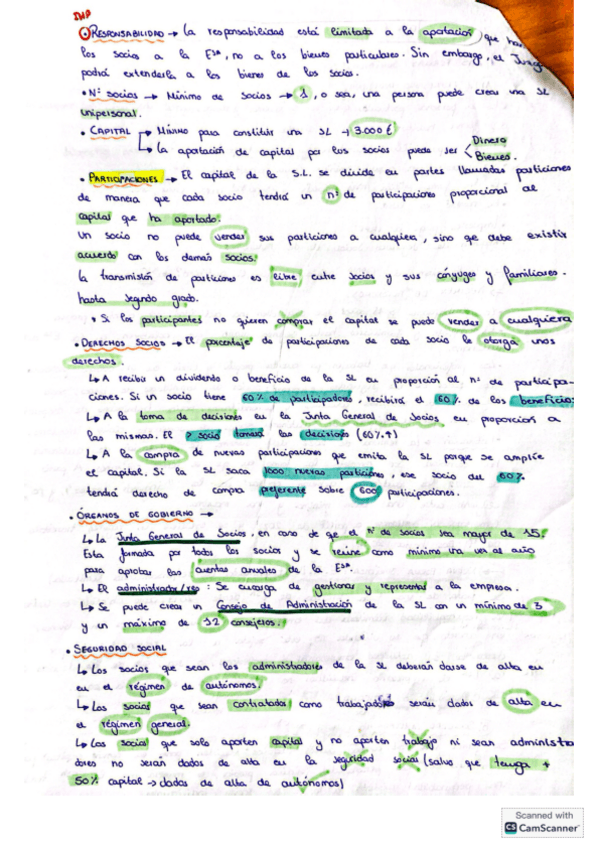 IMP
• RESPONSABILIDAD → La responsabilidad está limitada a la aportación que han
los socios a la Esa, no a los bienes particulares. Sin embargo, el Juez
podrá extenderla a los bienes de los socios.
• Nº Socios → Mínimo de socios → 1, o sea, una persona puede crear una SL
unipersonal.
• CAPITAL → Mínimo para constituir una SL → 3.000 €
↳ La aportación de capital por los socios puede ser < Dinero
Bienes.
• PARTICIPACIONES → El capital de la S.L. se divide en partes llamadas particiones
de manera que cada socio tendrá un nº de participaciones proporcional al
capital que ha aportado.
Un socio no puede vender sus particiones a cualquiera, sino que debe existir
acuerdo con los demás socios.
La transmisión de particiones es libre entre socios y sus cónyuges y familiares
hasta segundo grado.
• Si los participantes no quieren comprar el capital se puede vender a cualquiera
• DERECHOS SOCIOS → El porcentaje de participaciones de cada socio le otorga unos
derechos.
↳ A recibir un dividendo o beneficio de la SL en proporción al nº de participa-
ciones. Si un socio tiene 60% de participadores, recibirá el 60% de los beneficios
↳ A la toma de decisiones en la Junta General de Socios en proporción a
las mismas. El > socio tomará las decisiones (60%↑)
↳ A la compra de nuevas participaciones que emita la SL porque se amplíe
el capital. Si la SL saca 1000 nuevas particiones, ese socio del 60%
tendrá derecho de compra preferente sobre 600 participaciones.
• ÓRGANOS DE GOBIERNO →
↳ La Junta General de Socios, en caso de que el Nº de socios sea mayor de 15.
Esta formada por todos los socios y se reúne como mínimo una vez al año
para aprobar las cuentas anuales de la Esa.
↳ El administrador/res: Se encarga de gestionar y representar a la empresa.
↳ Se puede crear un Consejo de Administración de la SL con un mínimo de 3
y un máximo de 12 consejeros.
• SEGURIDAD SOCIAL
↳ Los socios que sean los administradores de la SL deberán darse de alta en
en el régimen de autónomos.
↳ Los socios que sean contratados como trabajadores serán dados de alta en
el régimen general.
↳ Los socios que solo aporten capital y no aporten trabajo ni sean administra
dores no serán dados de alta en la seguridad social (salvo que tenga +
50% capital → dados de alta de autónomos)
Scanned with
CS CamScanner